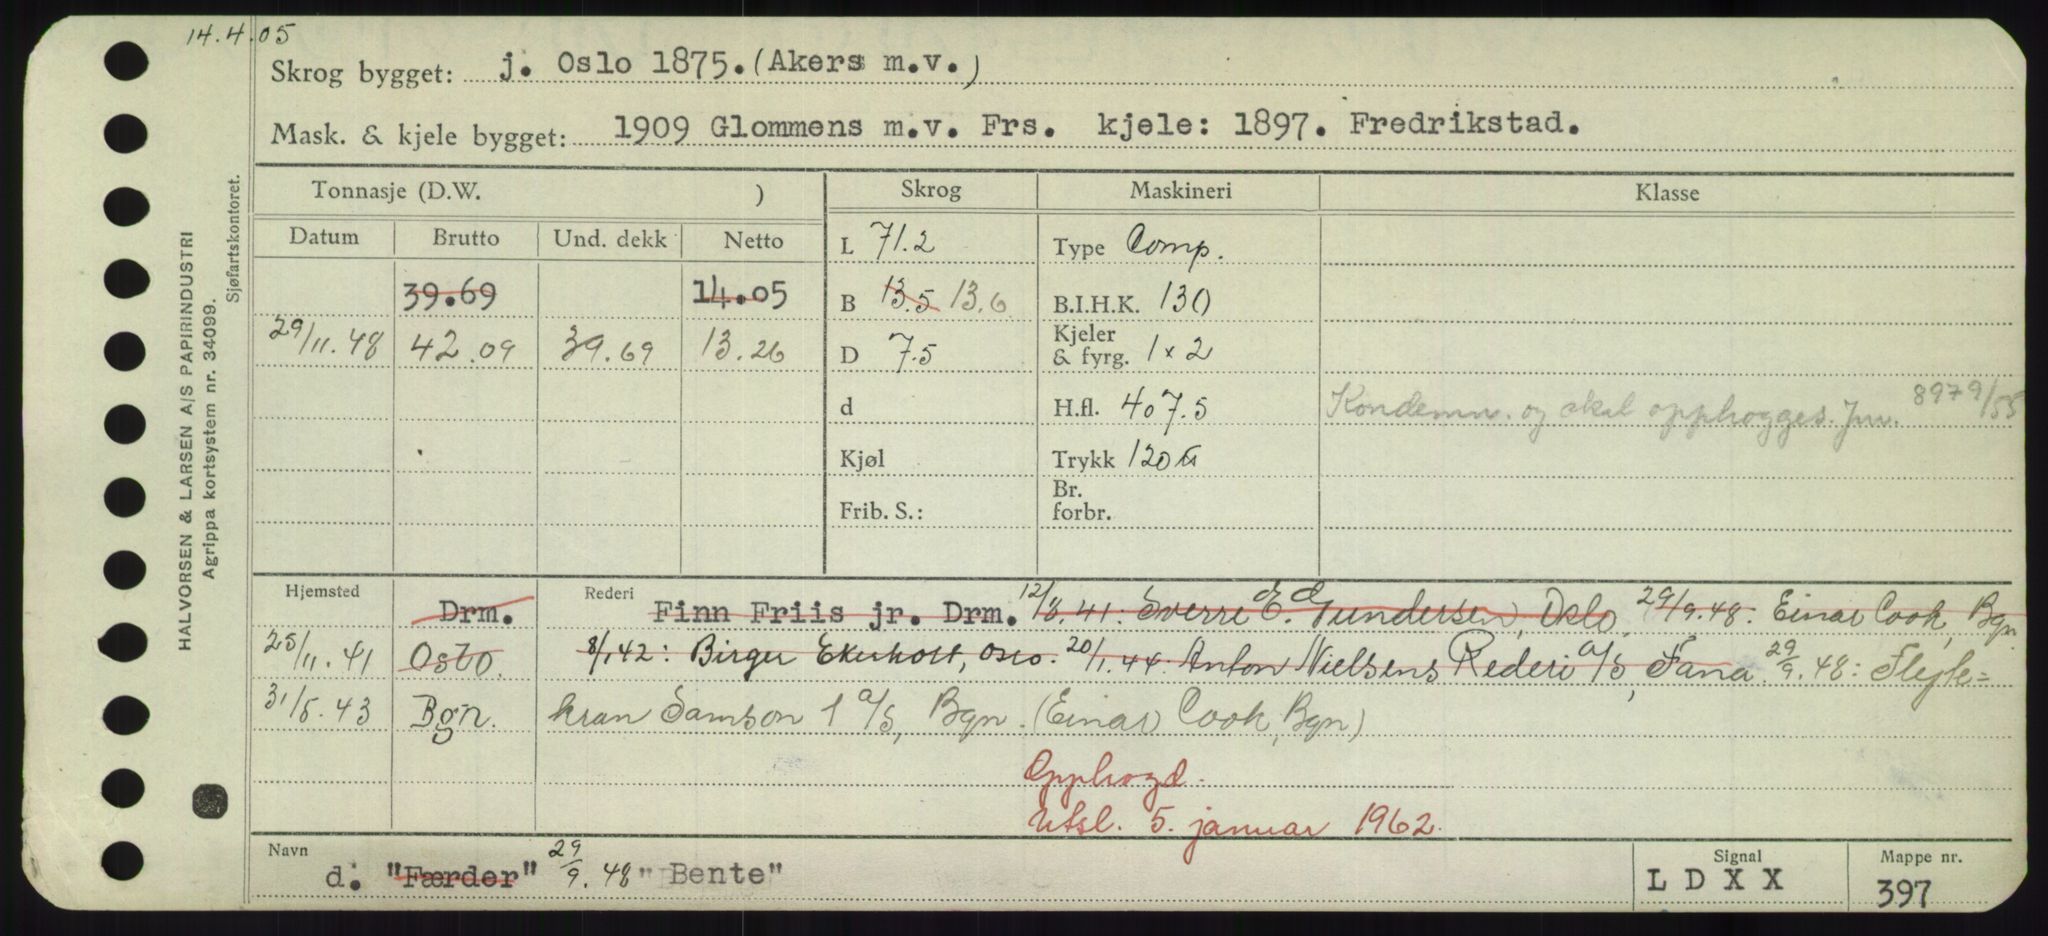 14.4.05
Skrog bygget: j. Oslo 1875. (Akers m.v.)
Mask. & kjele bygget: 1909 Glommens m.v. Frs. kjele: 1897. Fredrikstad.
HALVORSEN & LARSEN A/S PAPIRINDUSTRI
Agrippa kortsystem nr. 34099.
Sjøfartskontoret.
Tonnasje (D.W. ) Skrog Maskineri Klasse
Datum Brutto Und. dekk Netto L 71.2 Type Comp.
39.69 14.05 B 13.5 13.6 B.I.H.K. 130
29/11.48 42.09 39.69 13.26 D 7.5 Kjeler & fyrg. 1x2
d H.fl. 407.5 Kondemn. og skal opphogges. Jnr. 8979/55
Kjøl Trykk 120
Frib. S.: Br. forbr.
Hjemsted Drm. Rederi Finn Friis jr. Drm. 12/8.41: Sverre E. Gundersen, Oslo, 29/9.48: Einar Cook, Bgn
25/11.41 Oslo. 8/1.42: Birger Ekerholt, Oslo. 20/1.44: Anton Nielsens Rederi A/S, Fana. 29/9.48: Flyte=
31/5.43 Bgn. kran Samson 1 A/S, Bgn. (Einar Cook, Bgn)
Opphogd.
Utsl. 5. januar 1962.
Navn d. "Færder" 29/9.48 "Bente" Signal LDXX Mappe nr. 397